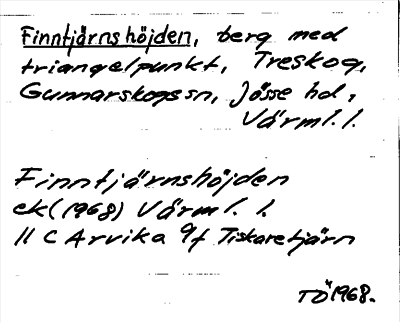 Finntjärnshöjden, berg med
triangelpunkt, Treskog,
Gunnarskogs sn, Jösse hd,
Värml. l.
Finntjärnshöjden
ek (1968) Värml. l.
11 C Arvika 9f Tiskaretjärn
TÖ 1968.